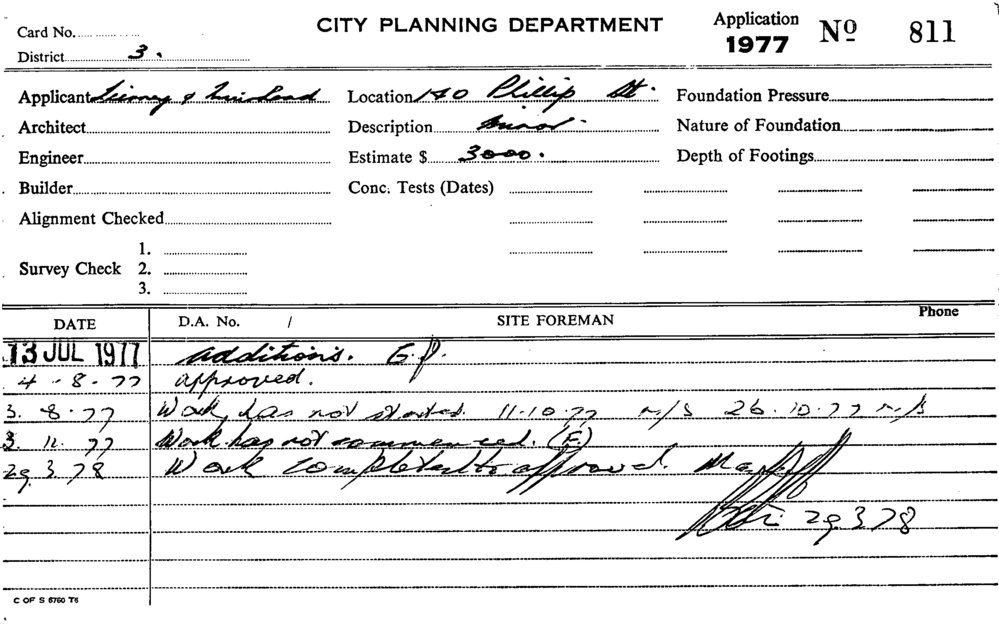 CITY PLANNING DEPARTMENT
Application
1977 Nº 811
Card No.
District 3.
Applicant & Muirhead Location 140 Phillip St. Foundation Pressure
Architect Description minor Nature of Foundation
Engineer Estimate $ 3000. Depth of Footings
Builder Conc. Tests (Dates)
Alignment Checked
Survey Check 1.
2.
3.
DATE D.A. No. / SITE FOREMAN Phone
13 JUL 1977 additions. G.P.
4-8-77 approved.
3. 8-77 Work has not started. 11-10-77 N/S 26.10.77 N/S
3. 11. 77 Work has not commenced. (F)
29 3 78 Work completed to approval.
29 3 78
C OF S 6760 T6